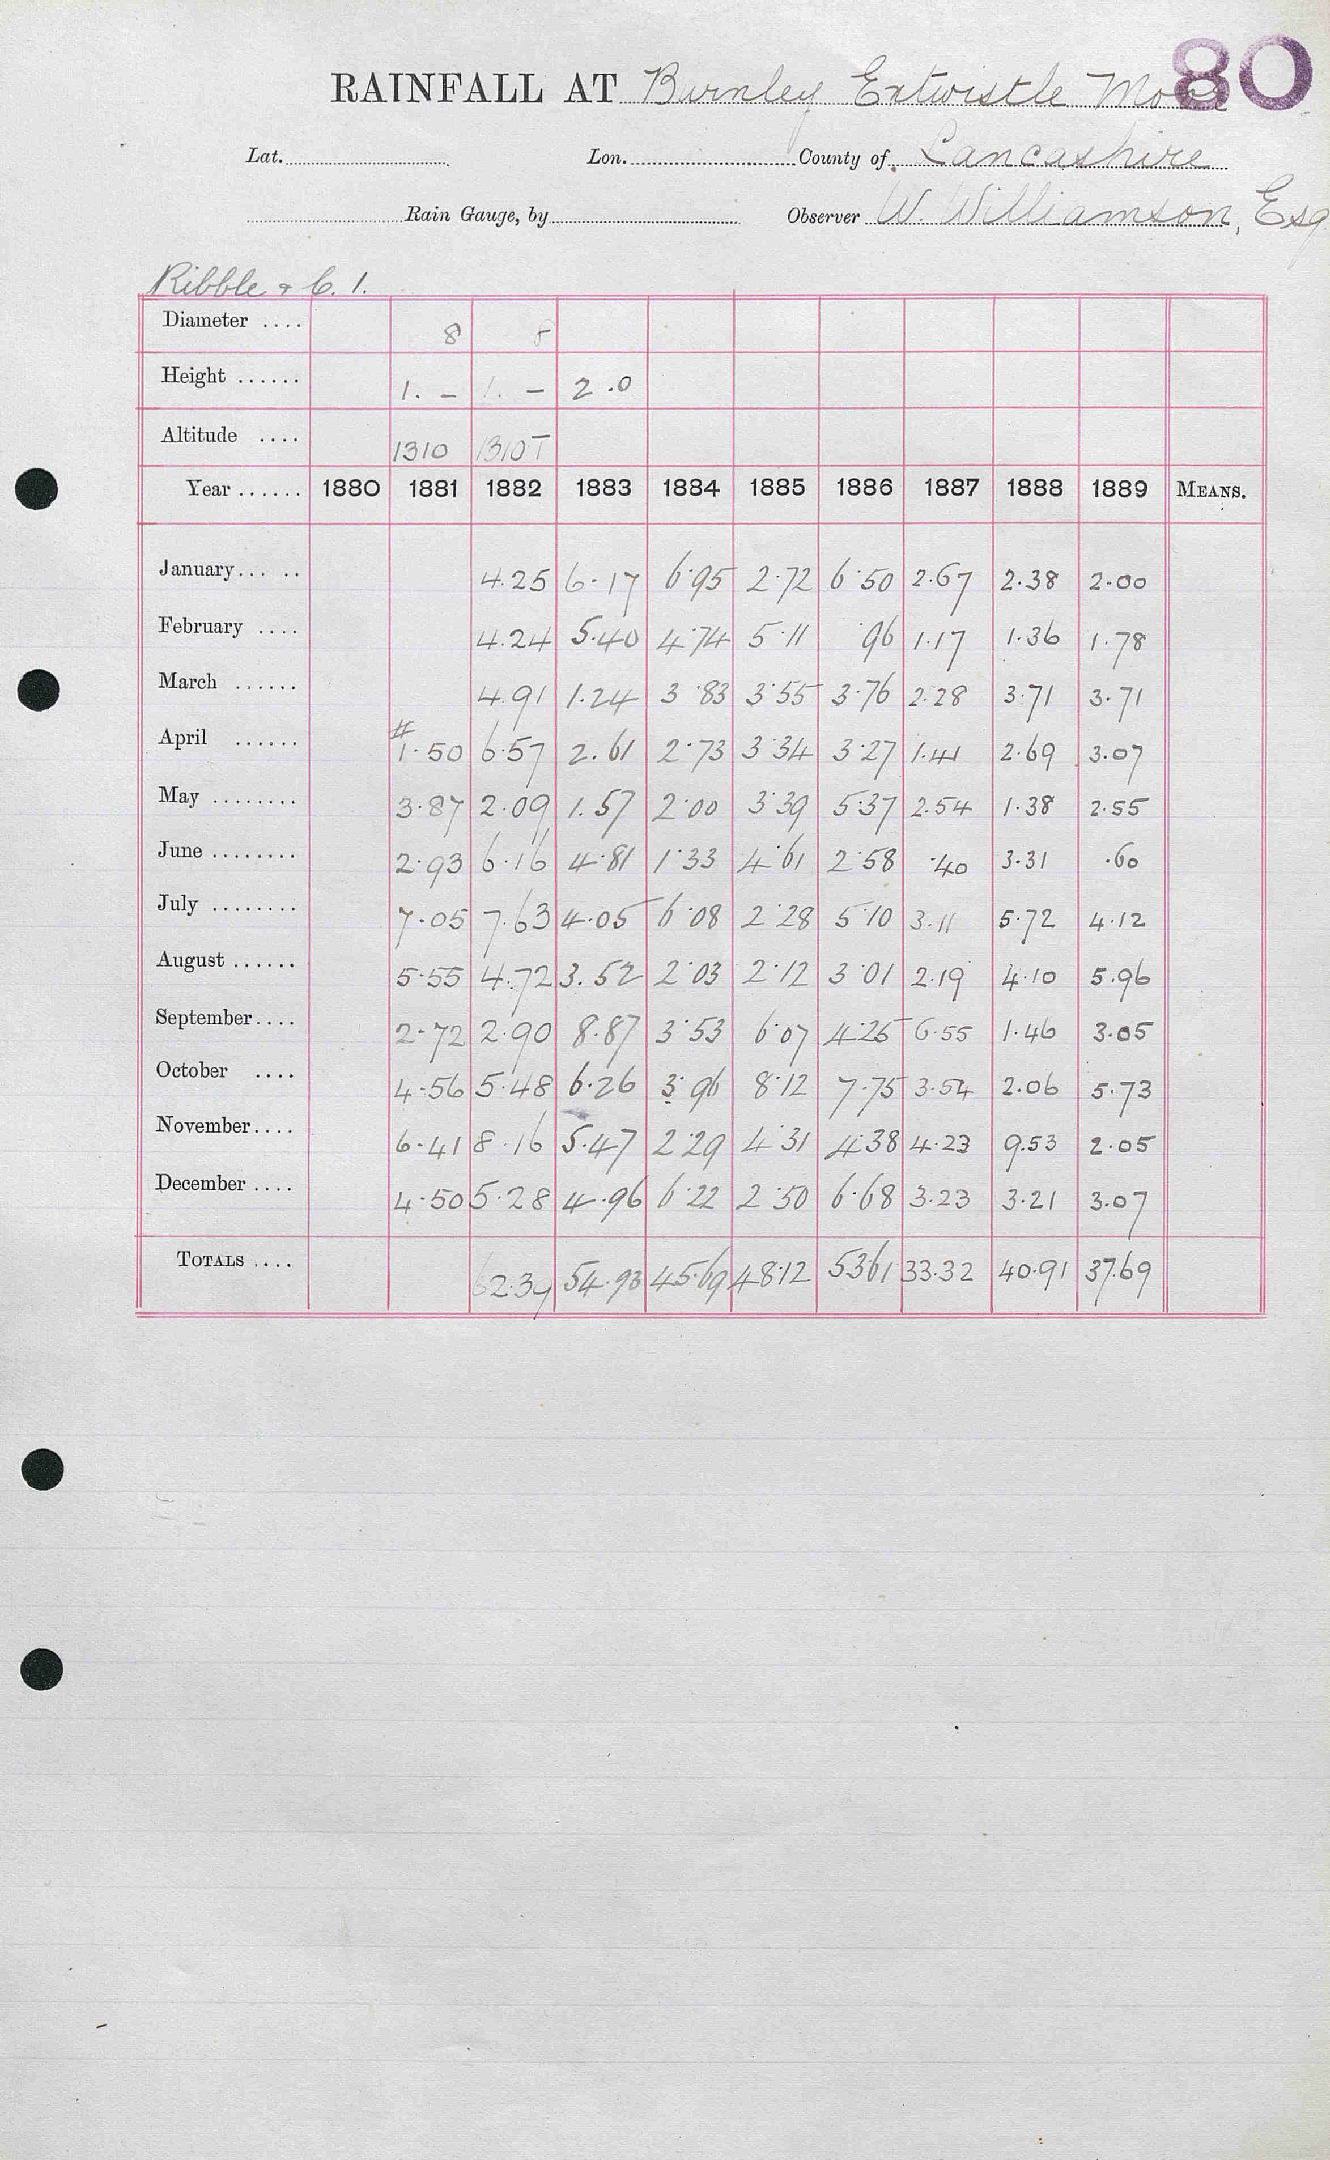 80
RAINFALL AT Burnley Entwistle Moss
Lat. Lon. County of Lancashire
Rain Gauge, by Observer W. Williamson, Esq
Ribble & C. 1.
Diameter .... 8 8
Height ...... 1. – 1. – 2.0
Altitude .... 1310 1310T
Year ...... 1880 1881 1882 1883 1884 1885 1886 1887 1888 1889 MEANS.
January... .. 4.25 6.17 6.95 2.72 6.50 2.67 2.38 2.00
February .... 4.24 5.40 4.74 5.11 96 1.17 1.36 1.78
March ...... 4.91 1.24 3.83 3.55 3.76 2.28 3.71 3.71
April ...... #1.50 6.57 2.61 2.73 3.34 3.27 1.41 2.69 3.07
May ........ 3.87 2.09 1.57 2.00 3.39 5.37 2.54 1.38 2.55
June ........ 2.93 6.16 4.81 1.33 4.61 2.58 .40 3.31 .60
July ........ 7.05 7.63 4.05 6.08 2.28 5.10 3.11 5.72 4.12
August ...... 5.55 4.72 3.52 2.03 2.12 3.01 2.19 4.10 5.96
September.... 2.72 2.90 8.87 3.53 6.07 4.25 6.55 1.46 3.05
October .... 4.56 5.48 6.26 3.96 8.12 7.75 3.54 2.06 5.73
November.... 6.41 8.16 5.47 2.29 4.31 4.38 4.23 9.53 2.05
December .... 4.50 5.28 4.96 6.22 2.50 6.68 3.23 3.21 3.07
TOTALS .... 62.39 54.93 45.69 48.12 53.61 33.32 40.91 37.69